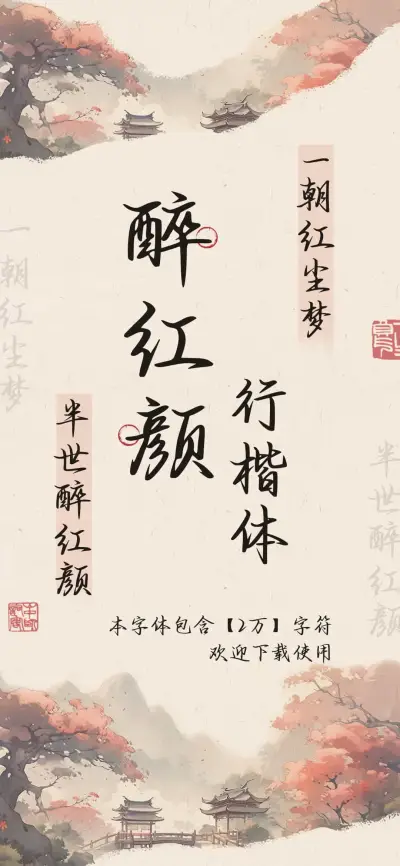 一朝红尘梦
醉红颜
行楷体
半世醉红颜
本字体包含【2万】字符
欢迎下载使用
一朝红尘梦
半世醉红颜